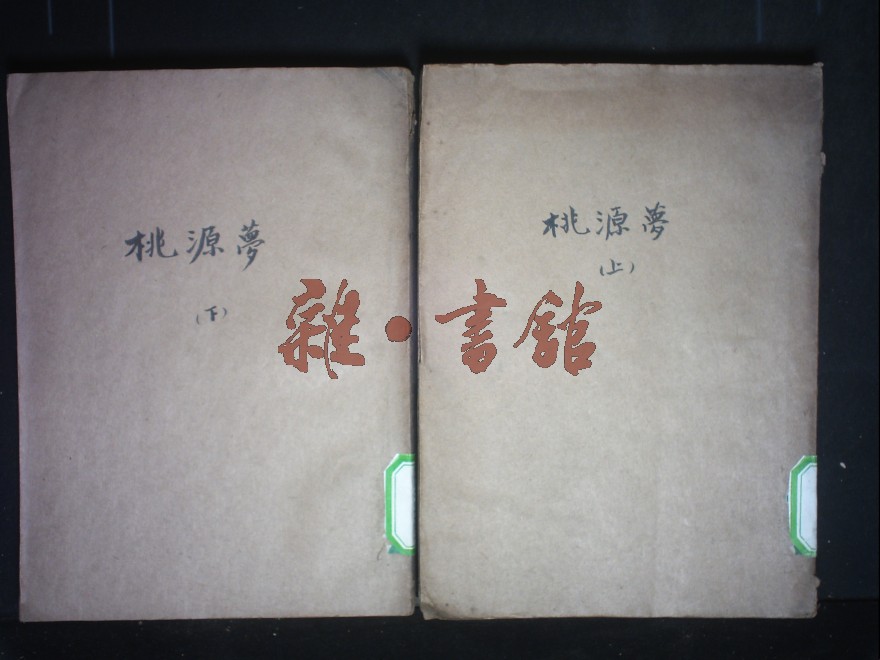 桃源夢
（下）
桃源夢
（上）
雜·書館